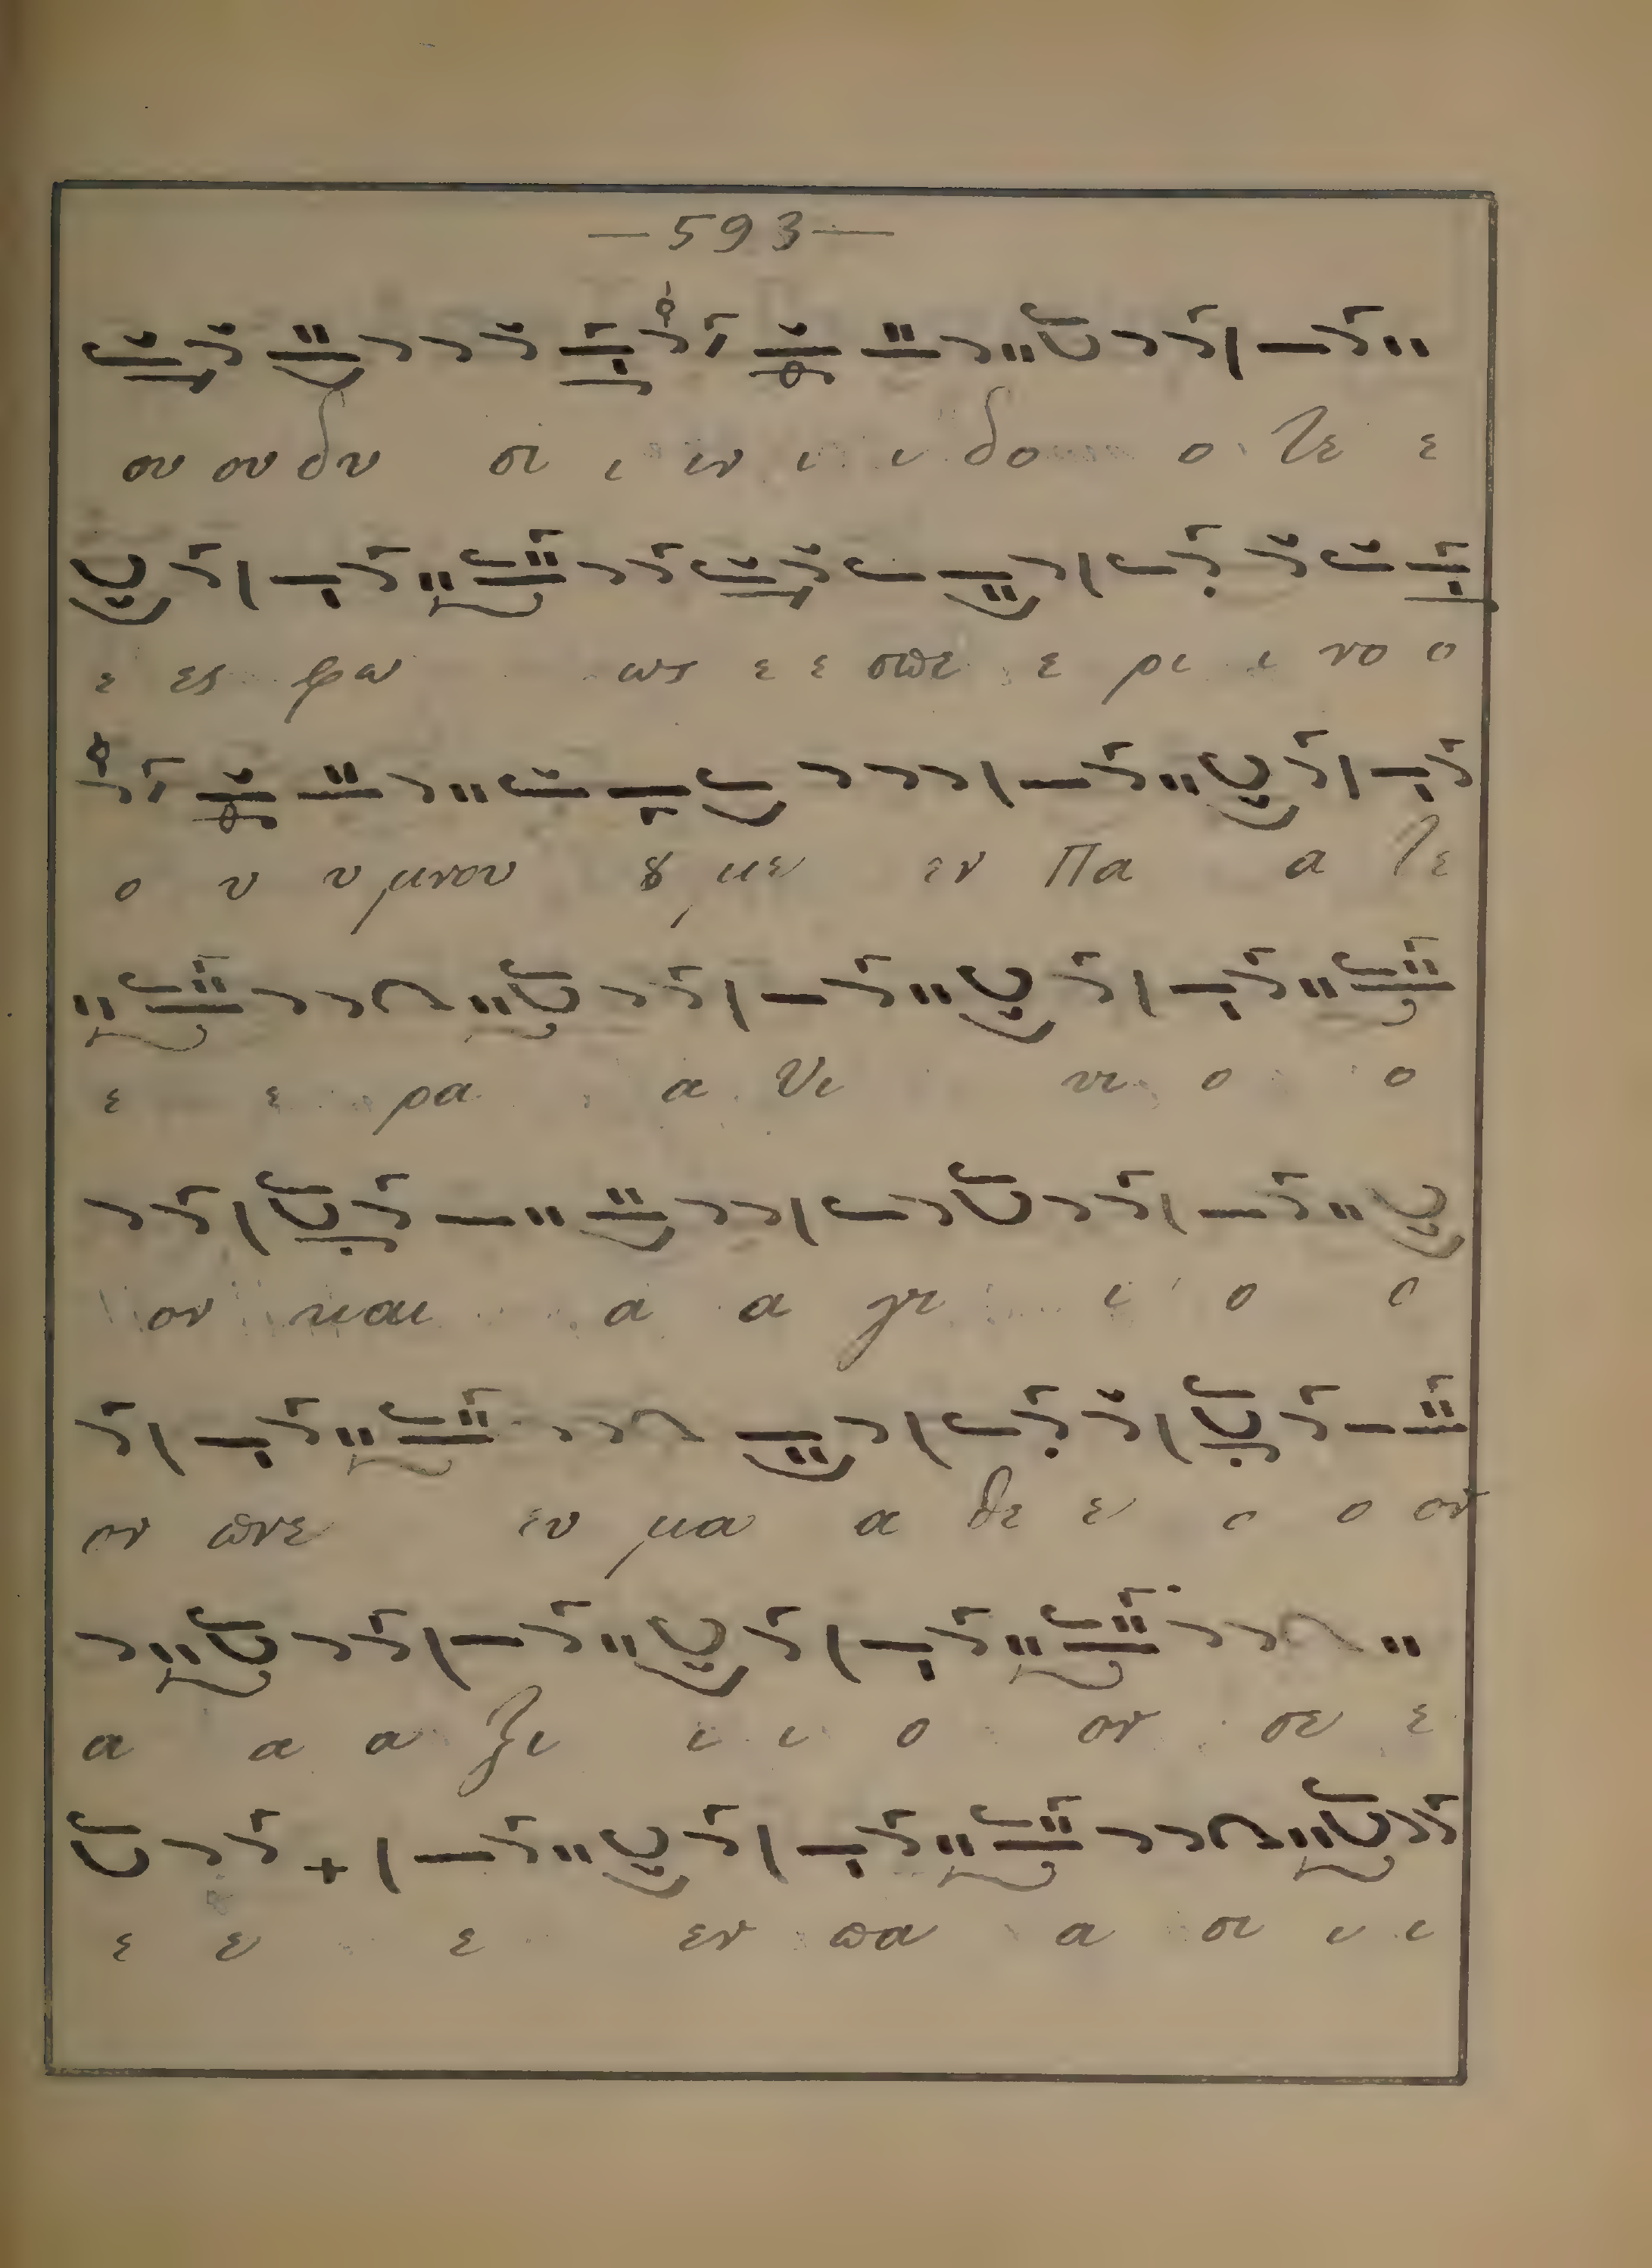 —593—
ου ου δυ σι ι ιν ι ι δο ο τε ε
ε ες φω ως ε ε σπε ε ρι ι νο ο
ο υ υ μνου ȣ με εν Πα α τε
ε ε ρα α Υι υι ο ο
ον και α α γι ι ο ο
ον πνε ευ μα α θε ε ο ο ον
α α α ξι ι ι ο ον σε ε
ε ε ε εν πα α σι ι ι